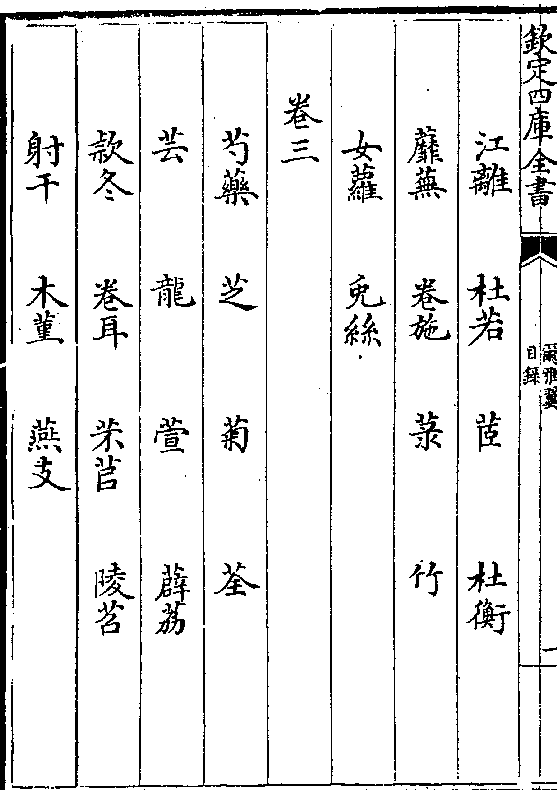 欽定四庫全書
爾雅翼
目錄
一
江離 杜若 茝 杜衡
蘼蕪 卷施 菉 竹
女蘿 兎絲
卷三
芍藥 芝 菊 荃
芸 龍 萱 薜荔
款冬 卷耳 芣苢 陵苕
射干 木菫 燕支